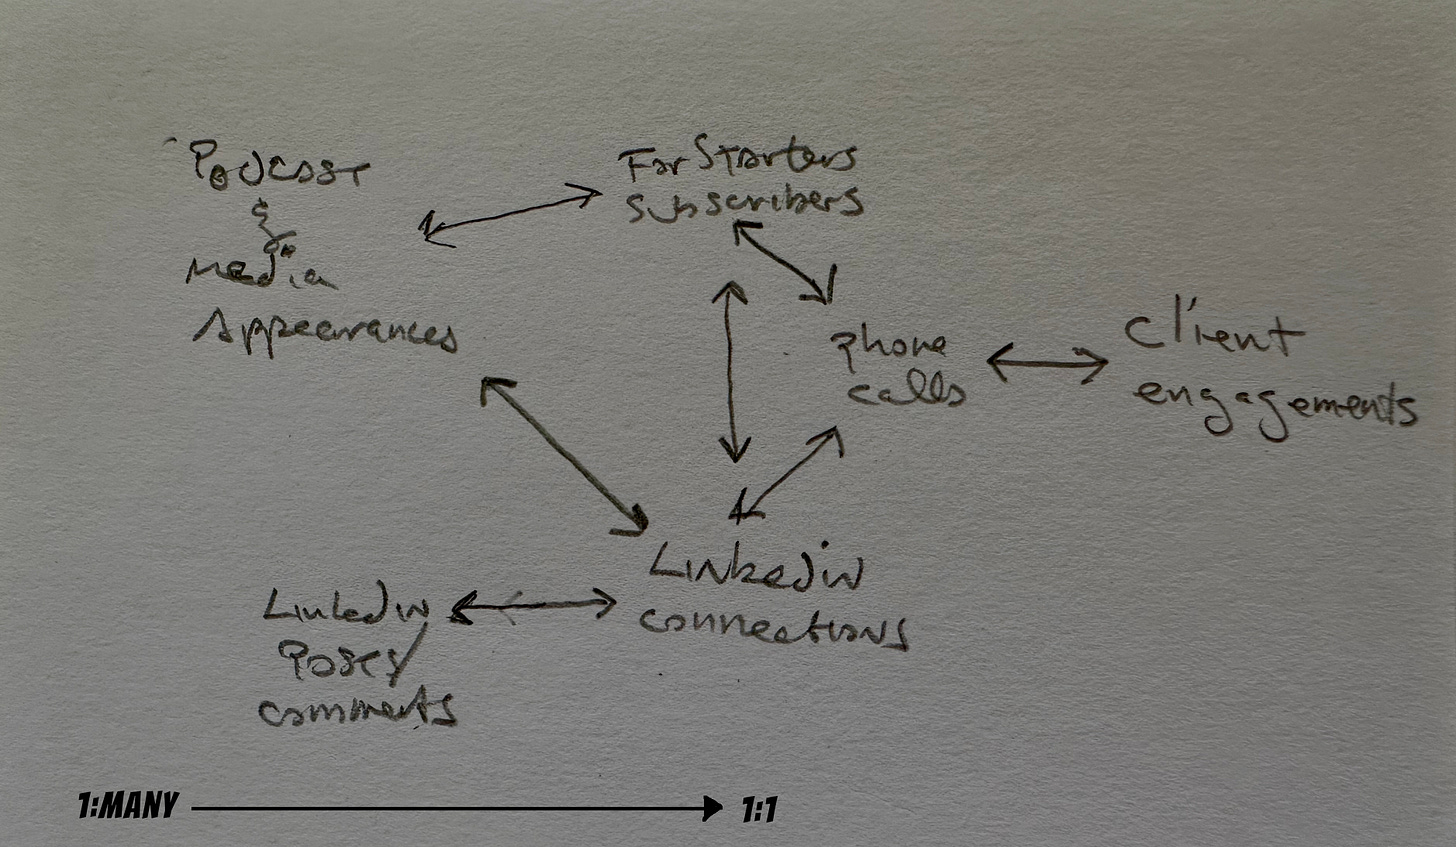 Podcast
&
Media
Appearances
For Starters
subscribers
phone
calls
client
engagements
LinkedIn
connections
LinkedIn
Posts/
comments
1:MANY
1:1